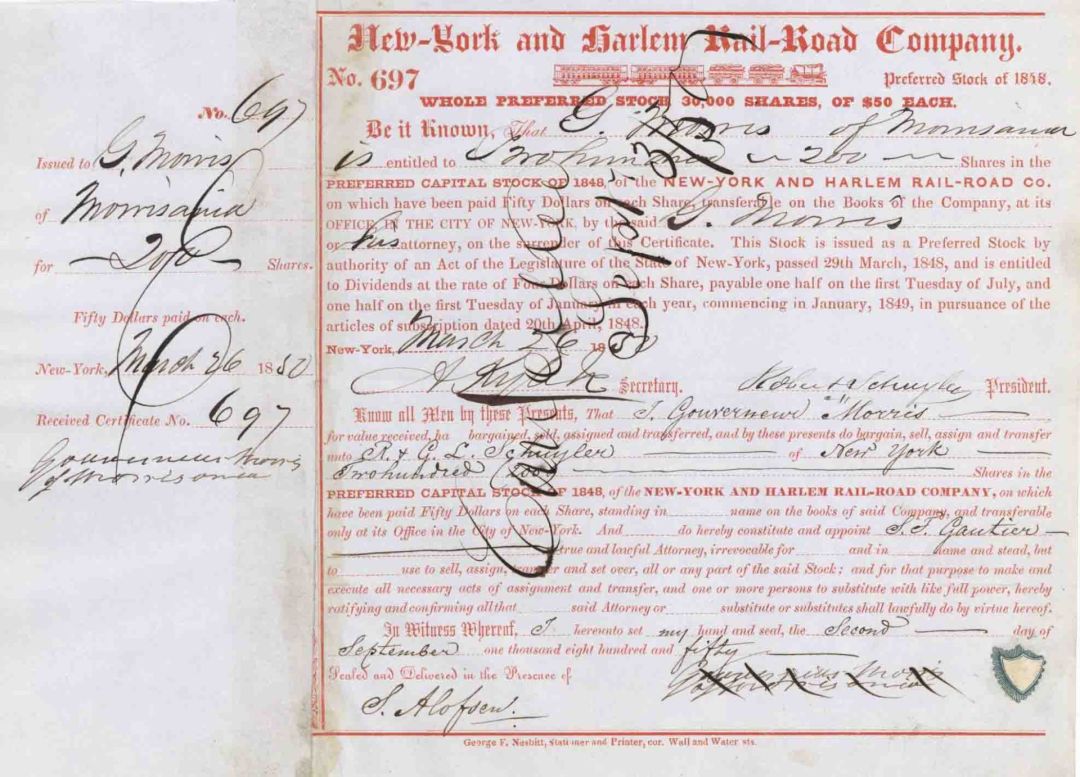 No. 697
Issued to G. Morris
of Morrisania
for 200 Shares.
Fifty Dollars paid on each.
New-York, March 26 1850
Received Certificate No. 697
Gouverneur Morris
of Morrisania
New-York and Harlem Rail-Road Company.
No. 697
Preferred Stock of 1848.
WHOLE PREFERRED STOCK 30,000 SHARES, OF $50 EACH.
Be it Known, That G. Morris of Morrisania
is entitled to Twohundred 200 Shares in the
PREFERRED CAPITAL STOCK OF 1848, of the NEW-YORK AND HARLEM RAIL-ROAD CO.
on which have been paid Fifty Dollars on each Share, transferable on the Books of the Company, at its
OFFICE, IN THE CITY OF NEW-YORK, by the said G. Morris
or his attorney, on the surrender of this Certificate. This Stock is issued as a Preferred Stock by
authority of an Act of the Legislature of the State of New-York, passed 29th March, 1848, and is entitled
to Dividends at the rate of Four Dollars on each Share, payable one half on the first Tuesday of July, and
one half on the first Tuesday of January in each year, commencing in January, 1849, in pursuance of the
articles of subscription dated 20th April, 1848.
New-York, March 26 1850
Secretary. Robert Schuyler President.
Know all Men by these Presents, That I Gouverneur Morris
for value received, ha bargained, sold, assigned and transferred, and by these presents do bargain, sell, assign and transfer
unto R. & G. L. Schuyler of New York
Twohundred 200 Shares in the
PREFERRED CAPITAL STOCK OF 1848, of the NEW-YORK AND HARLEM RAIL-ROAD COMPANY, on which
have been paid Fifty Dollars on each Share, standing in name on the books of said Company, and transferable
only at its Office in the City of New-York. And do hereby constitute and appoint S. T. Gautier
true and lawful Attorney, irrevocable for and in name and stead, but
to use to sell, assign, transfer and set over, all or any part of the said Stock; and for that purpose to make and
execute all necessary acts of assignment and transfer, and one or more persons to substitute with like full power, hereby
ratifying and confirming all that said Attorney or substitute or substitutes shall lawfully do by virtue hereof.
In Witness Whereof, I hereunto set my hand and seal, the Second day of
September one thousand eight hundred and fifty
Sealed and Delivered in the Presence of
Gouverneur Morris
of Morrisania
S. Alofsen.
Cancelled
George F. Nesbitt, Stationer and Printer, cor. Wall and Water sts.